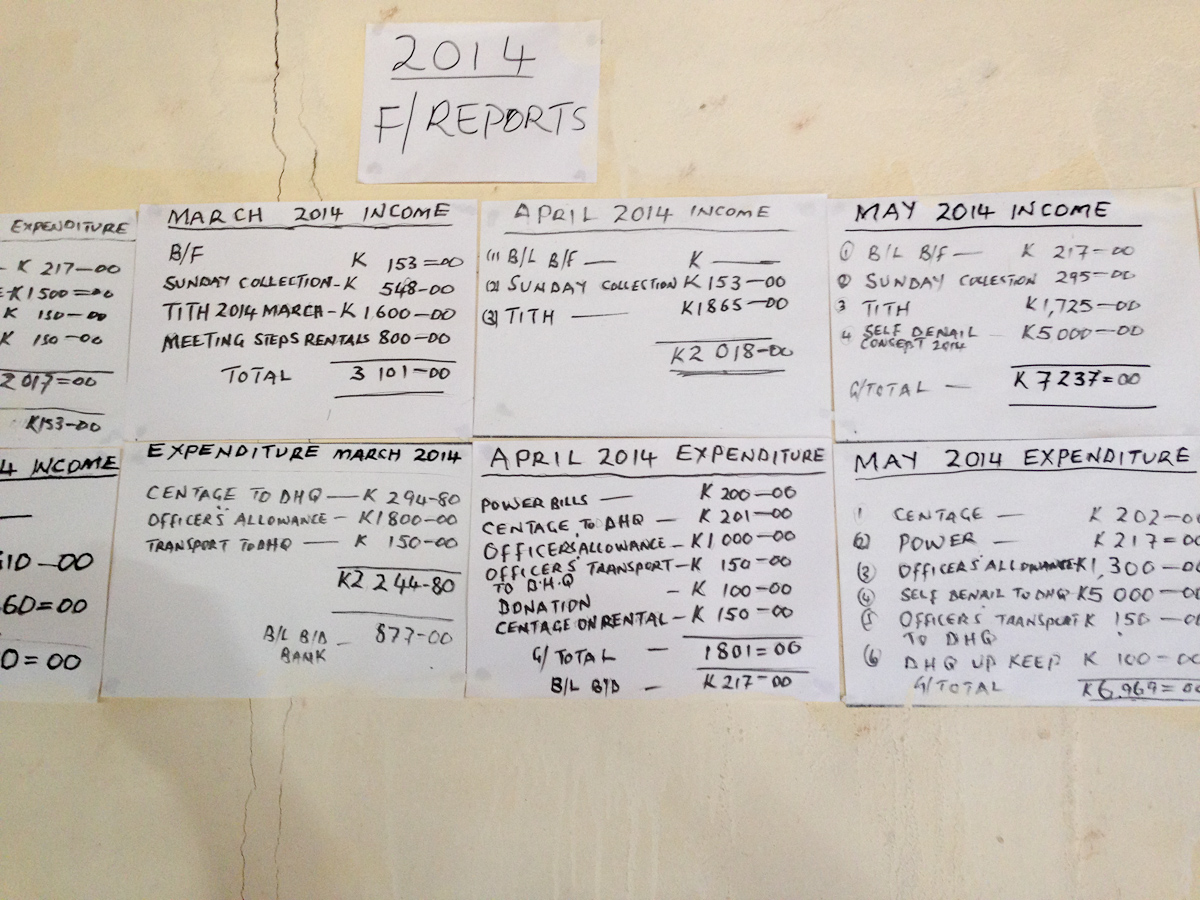 2014
F/REPORTS
EXPENDITURE
- K 217-00
K1500=00
K 150-00
K 150-00
2017=00
K153-00
4 INCOME
510-00
60=00
0=00
MARCH 2014 INCOME
B/F K 153=00
SUNDAY COLLECTION-K 548-00
TITH 2014 MARCH-K1600-00
MEETING STEPS RENTALS 800-00
TOTAL 3 101-00
EXPENDITURE MARCH 2014
CENTAGE TO DHQ — K 294-80
OFFICERS' ALLOWANCE - K1800-00
TRANSPORT TO DHQ — K 150-00
K2 244-80
B/L B/D - 877-00
BANK
APRIL 2014 INCOME
(1) B/L B/F — K —
(2) SUNDAY COLLECTION K 153-00
(3) TITH — K1865-00
K2 018-00
APRIL 2014 EXPENDITURE
POWER BILLS — K 200-00
CENTAGE TO DHQ - K 201-00
OFFICERS' ALLOWANCE - K1 000-00
OFFICERS' TRANSPORT - K 150-00
TO D.H.Q
DONATION - K 100-00
CENTAGE ON RENTAL - K 150-00
G/TOTAL - 1801=00
B/L B/D - K 217-00
MAY 2014 INCOME
1 B/L B/F — K 217-00
2 SUNDAY COLLECTION 295-00
3 TITH K1,725-00
4 SELF DENAIL K5000-00
CONSEPT 2014
G/TOTAL — K 7237=00
MAY 2014 EXPENDITURE
1 CENTAGE — K 202-00
(2) POWER — K 217=00
(3) OFFICERS' ALLOWANCE K1,300-00
(4) SELF DENAIL TO DHQ K5 000-00
(5) OFFICERS' TRANSPORT K 150-00
TO DHQ
(6) DHQ UP KEEP K 100-00
G/TOTAL K6,969=00